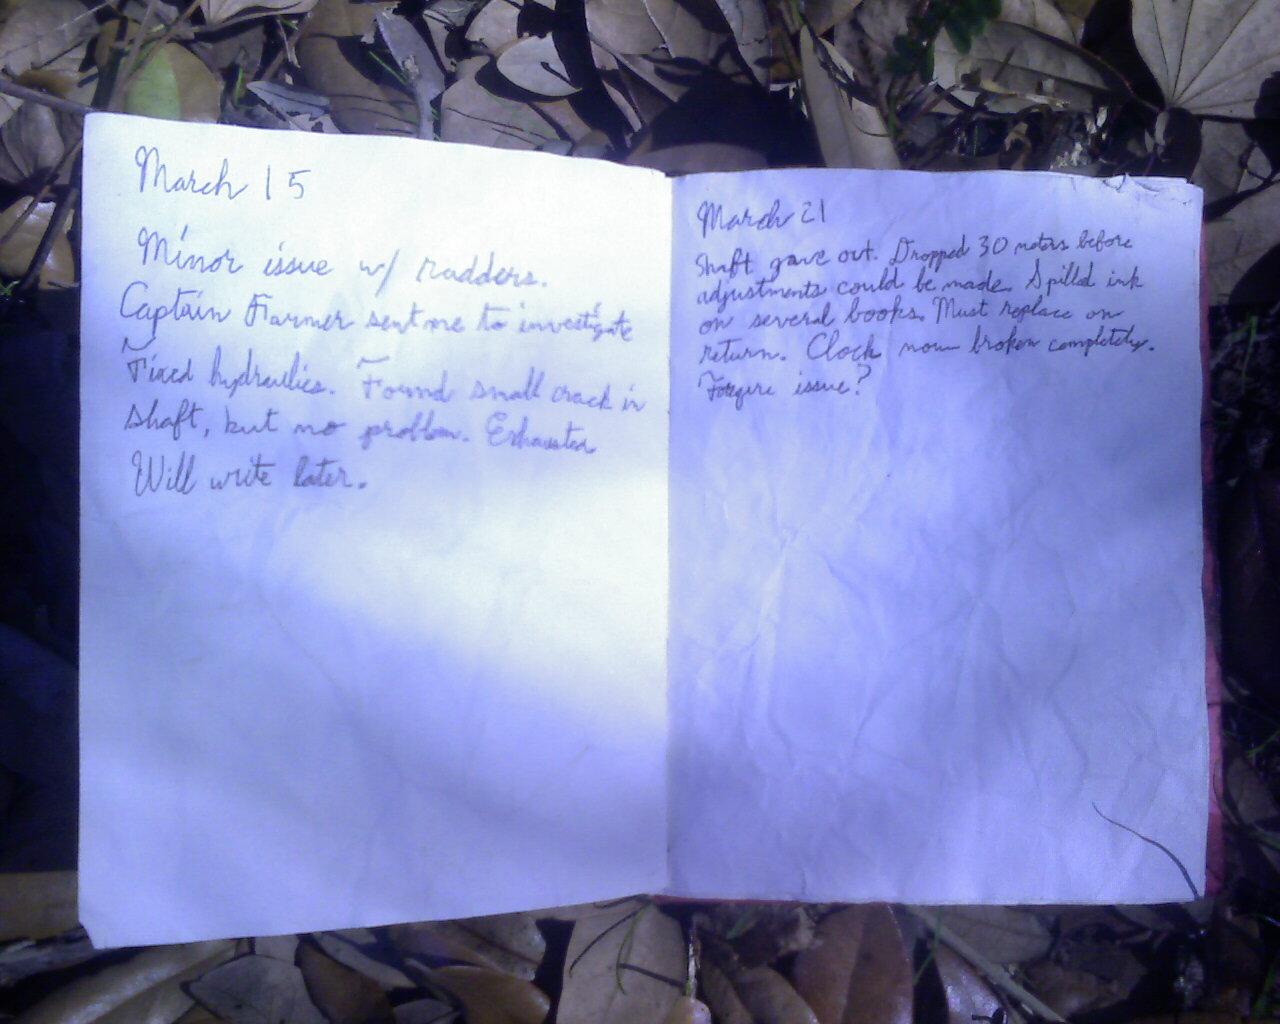 March 15
Minor issue w/ rudders.
Captain Farmer sent me to investigate
Fixed hydraulics. Found small crack in
shaft, but no problem. Exhausted
Will write later.
March 21
Shaft gave out. Dropped 30 meters before
adjustments could be made. Spilled ink
on several books. Must replace on
return. Clock now broken completely.
issue?